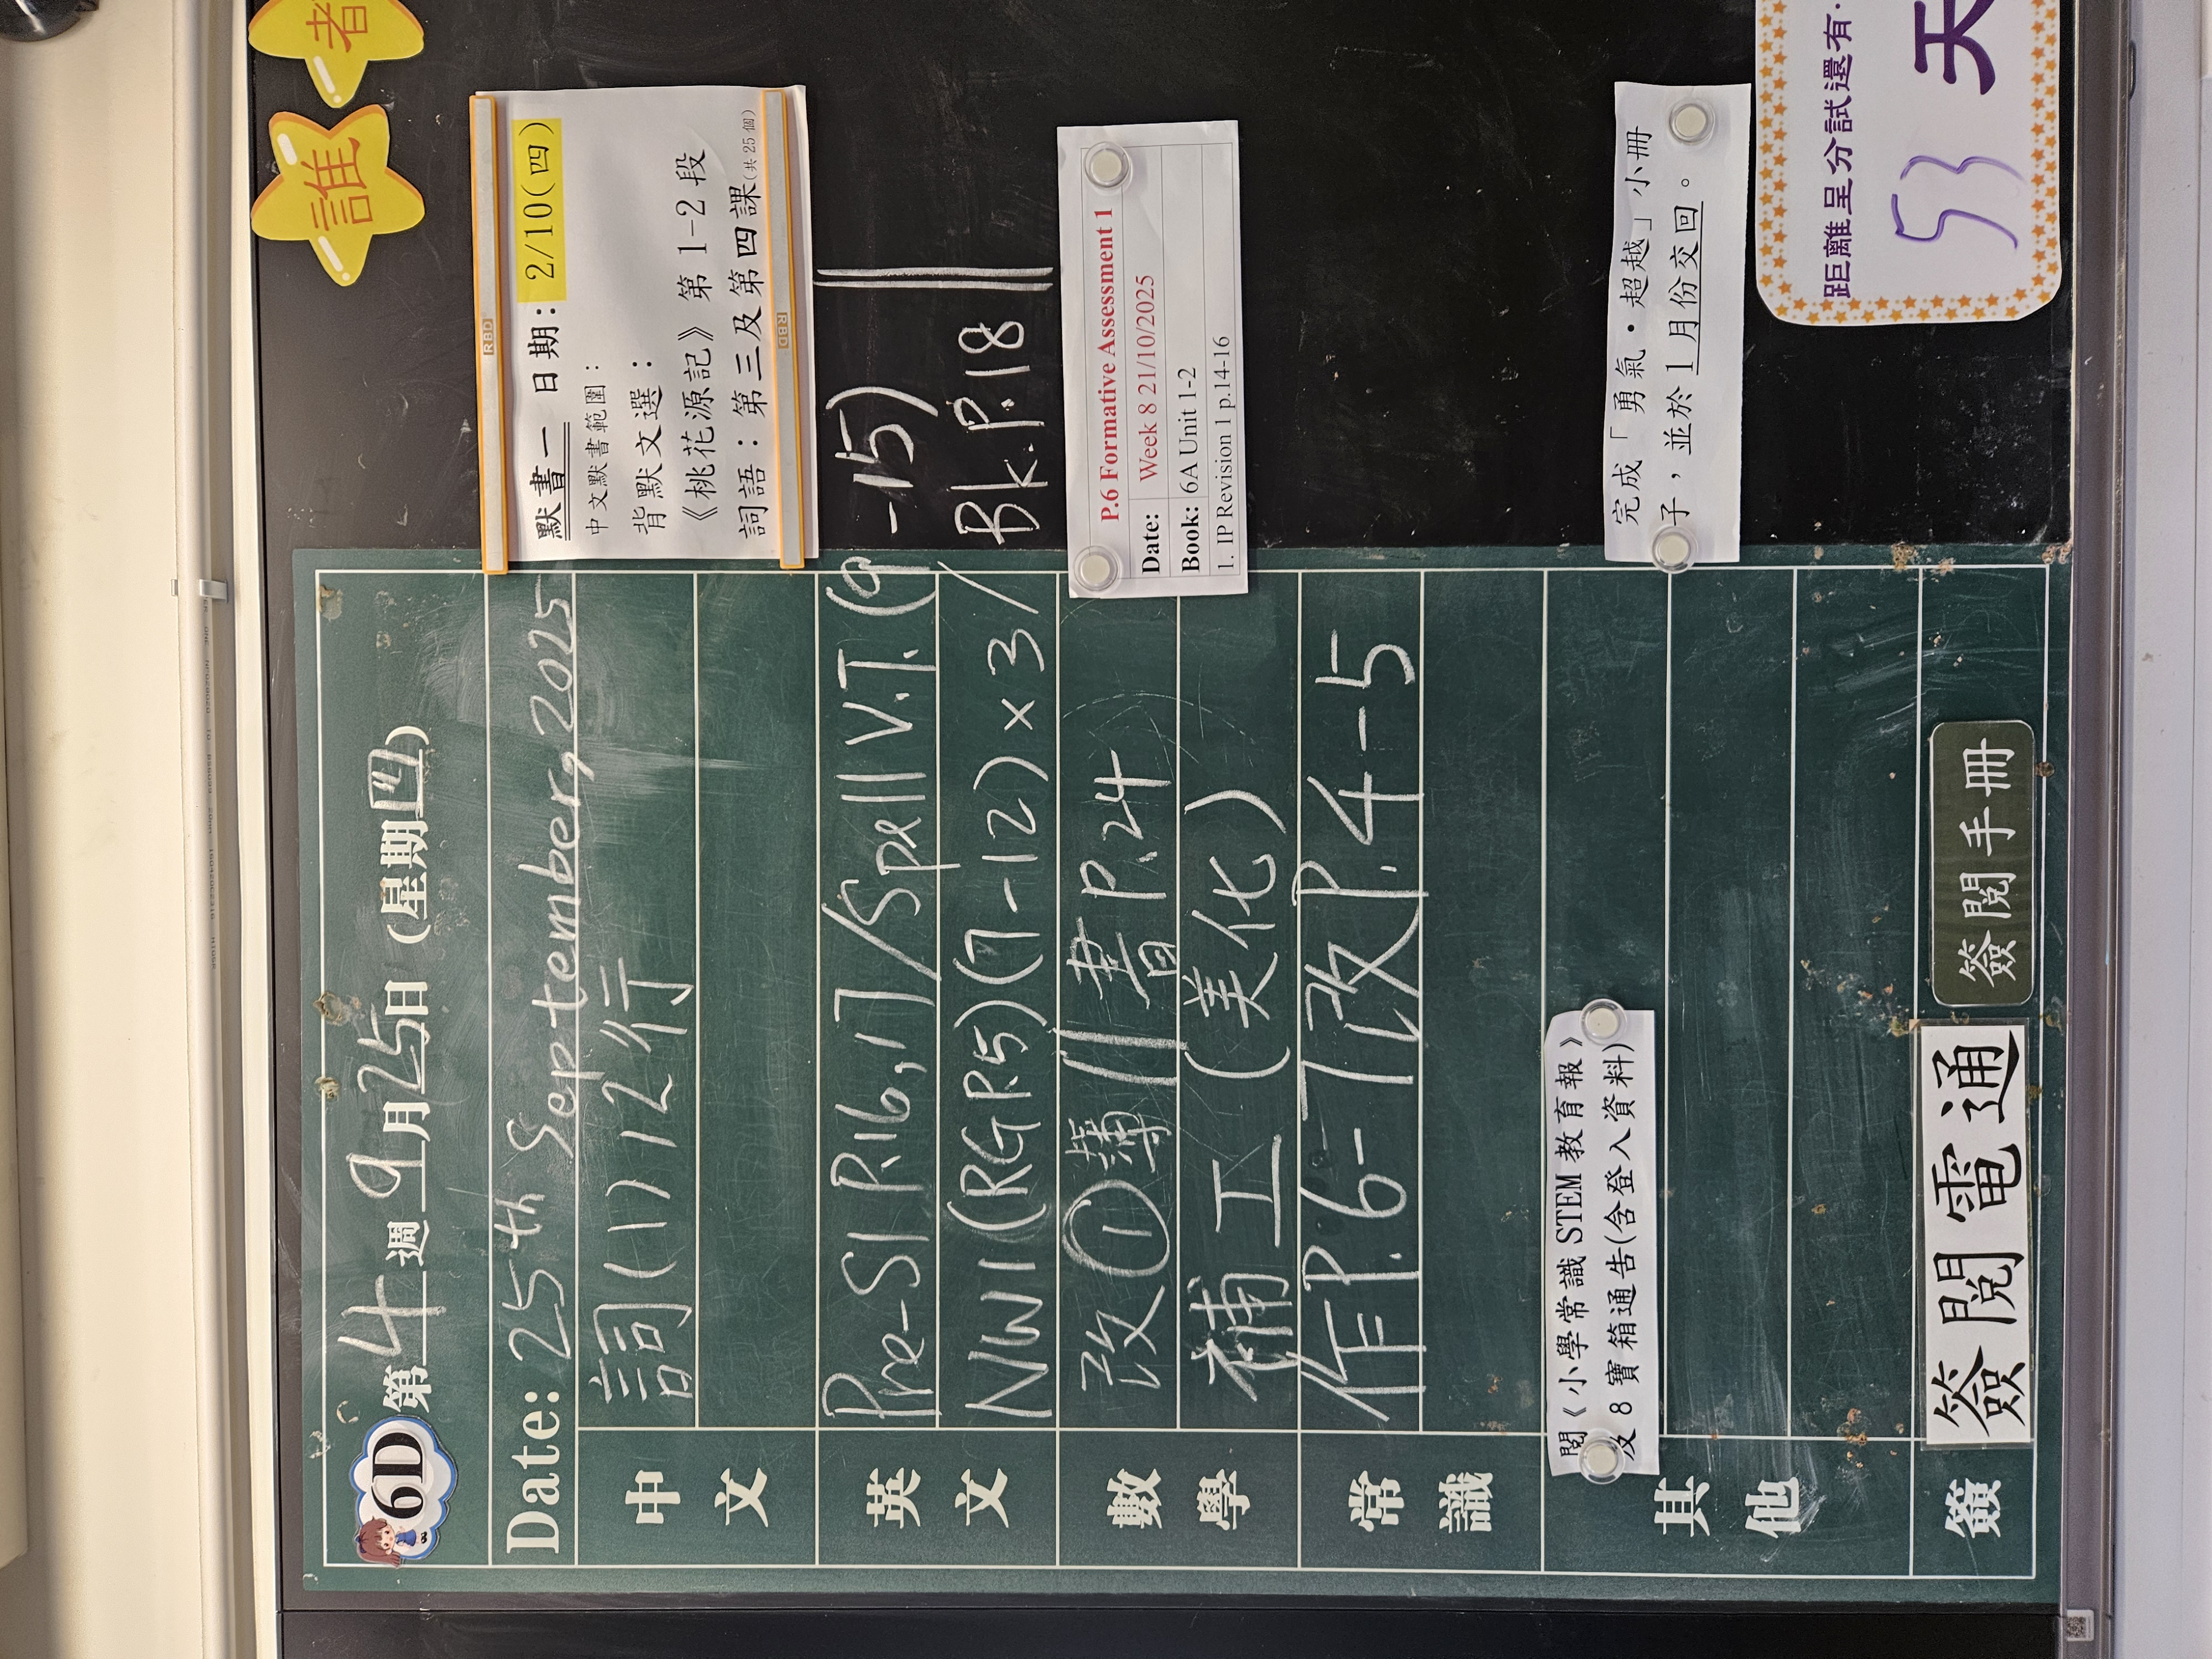 誰
者
6D 第4週 9月25日 (星期四)
Date: 25th September, 2025
中文
詞(1) 12行
英文
Pre-S1 P.16,17/Spell V.T. (9-15)
NW1(RG P.5)(7-12)×3/Bk.P.18
數學
改①簿 // 書P.24
補工(美化)
常識
作P.6-7改P.4-5
其他
閱《小學常識 STEM 教育報》
及 8 寶箱通告(含登入資料)
簽
簽閱電通
簽閱手冊
默書一 日期: 2/10(四)
中文默書範圍:
背默文選:
《桃花源記》第 1-2 段
詞語:第三及第四課(共 25 個)
P.6 Formative Assessment 1
Date: Week 8 21/10/2025
Book: 6A Unit 1-2
1. IP Revision 1 p.14-16
完成「勇氣・超越」小冊
子,並於 1 月份交回。
距離呈分試還有
53 天
RBD
RBD